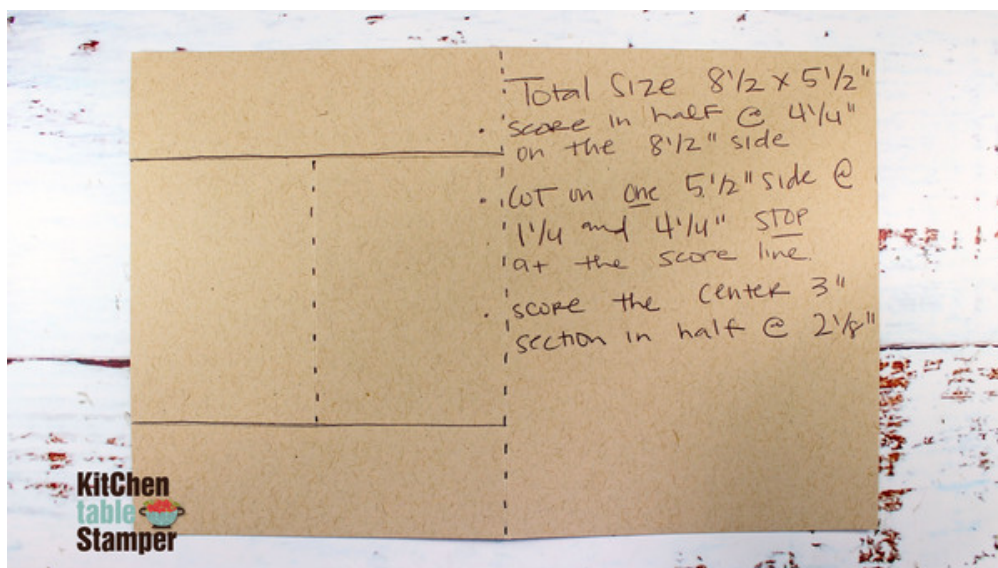 Total Size 8 1/2 x 5 1/2"
• score in half @ 4 1/4"
on the 8 1/2" side
• CUT on one 5 1/2" side @
1 1/4 and 4 1/4" STOP
at the score line.
• score the center 3"
section in half @ 2 1/8"
KitChen
table
Stamper